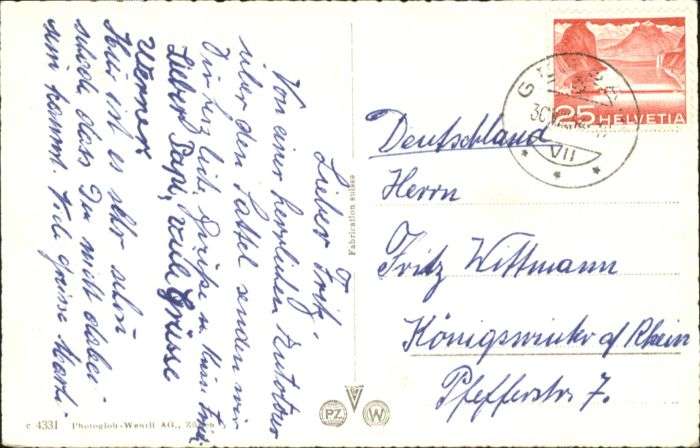 Lieber Fritz,
Von einer herrlichen Autotour
über den Sattel senden wir
Dir herzliche Grüße
Lieber Papi, viele Grüsse
Werner
Hier ist es sehr schön
schade dass Du nicht dabei
sein kannst. Viele Grüsse
c 4331 Photoglob-Wehrli AG., Zürich
Fabrication suisse
PZ
W
25 HELVETIA
VII
Deutschland
Herrn
Fritz Wittmann
Königswinter a/Rhein
Pfefferstr 7.